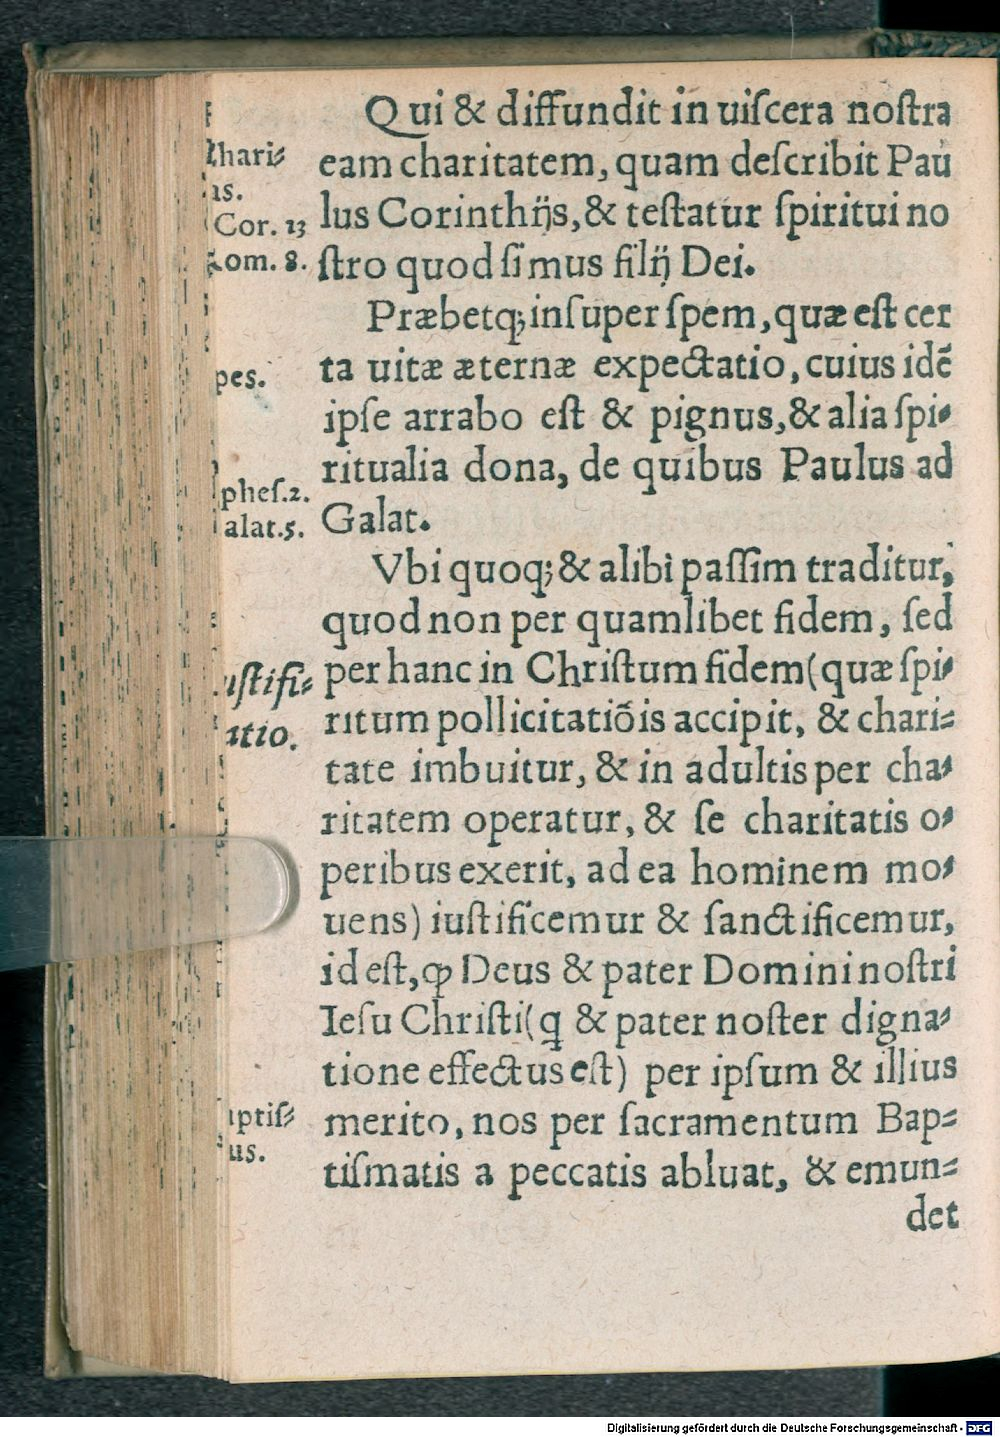 Qui & diffundit in uiſcera noſtra
eam charitatem, quam deſcribit Pau
lus Corinthijs, & teſtatur ſpiritui no
ſtro quod ſimus filij Dei.
Præbetq; inſuper ſpem, quæ eſt cer
ta uitæ æternæ expectatio, cuius idē
ipſe arrabo eſt & pignus, & alia ſpi⸗
ritualia dona, de quibus Paulus ad
Galat.
Vbi quoq; & alibi paſſim traditur,
quod non per quamlibet fidem, ſed
per hanc in Chriſtum fidem (quæ ſpi⸗
ritum pollicitatiōis accipit, & chari⸗
tate imbuitur, & in adultis per cha⸗
ritatem operatur, & ſe charitatis o⸗
peribus exerit, ad ea hominem mo⸗
uens) iuſtificemur & ſanctificemur,
id eſt, ꝙ Deus & pater Domini noſtri
Ieſu Chriſti (q & pater noſter digna⸗
tione effectus eſt) per ipſum & illius
merito, nos per ſacramentum Bap⸗
tiſmatis a peccatis abluat, & emun⸗
det
hari⸗
as.
Cor. 13
om. 8.
pes.
pheſ. 2.
alat. 5.
uſtifi⸗
atio.
aptiſ⸗
us.
Digitalisierung gefördert durch die Deutsche Forschungsgemeinschaft - DFG